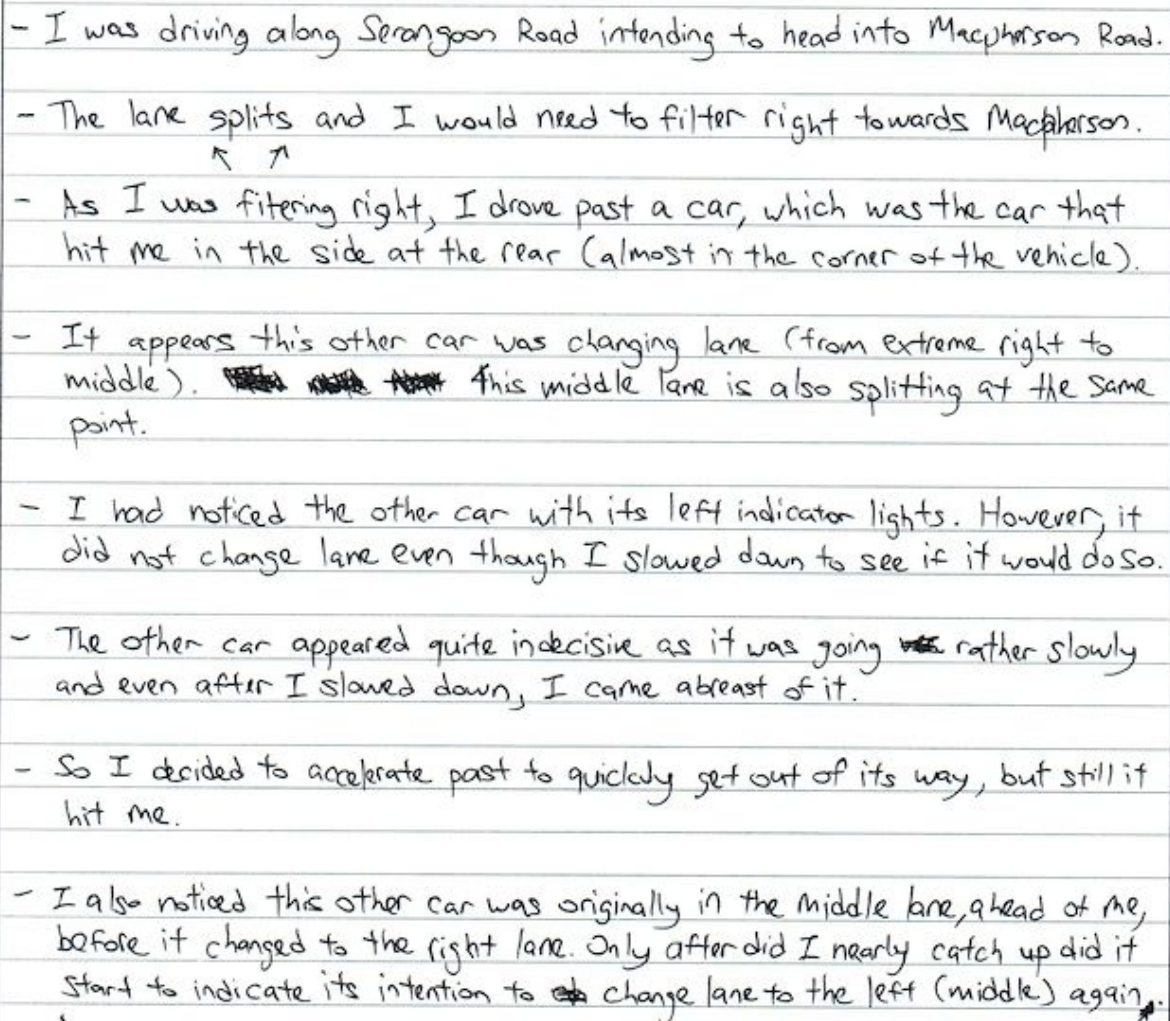 - I was driving along Serangoon Road intending to head into Macpherson Road.
- The lane splits and I would need to filter right towards Macpherson.
- As I was fitering right, I drove past a car, which was the car that
hit me in the side at the rear (almost in the corner of the vehicle).
- It appears this other car was changing lane (from extreme right to
middle). This middle lane is also splitting at the same
point.
- I had noticed the other car with its left indicator lights. However, it
did not change lane even though I slowed down to see if it would do so.
- The other car appeared quite indecisive as it was going rather slowly
and even after I slowed down, I came abreast of it.
- So I decided to accelerate past to quickly get out of its way, but still it
hit me.
- I also noticed this other car was originally in the middle lane, ahead of me,
before it changed to the right lane. Only after did I nearly catch up did it
start to indicate its intention to change lane to the left (middle) again.